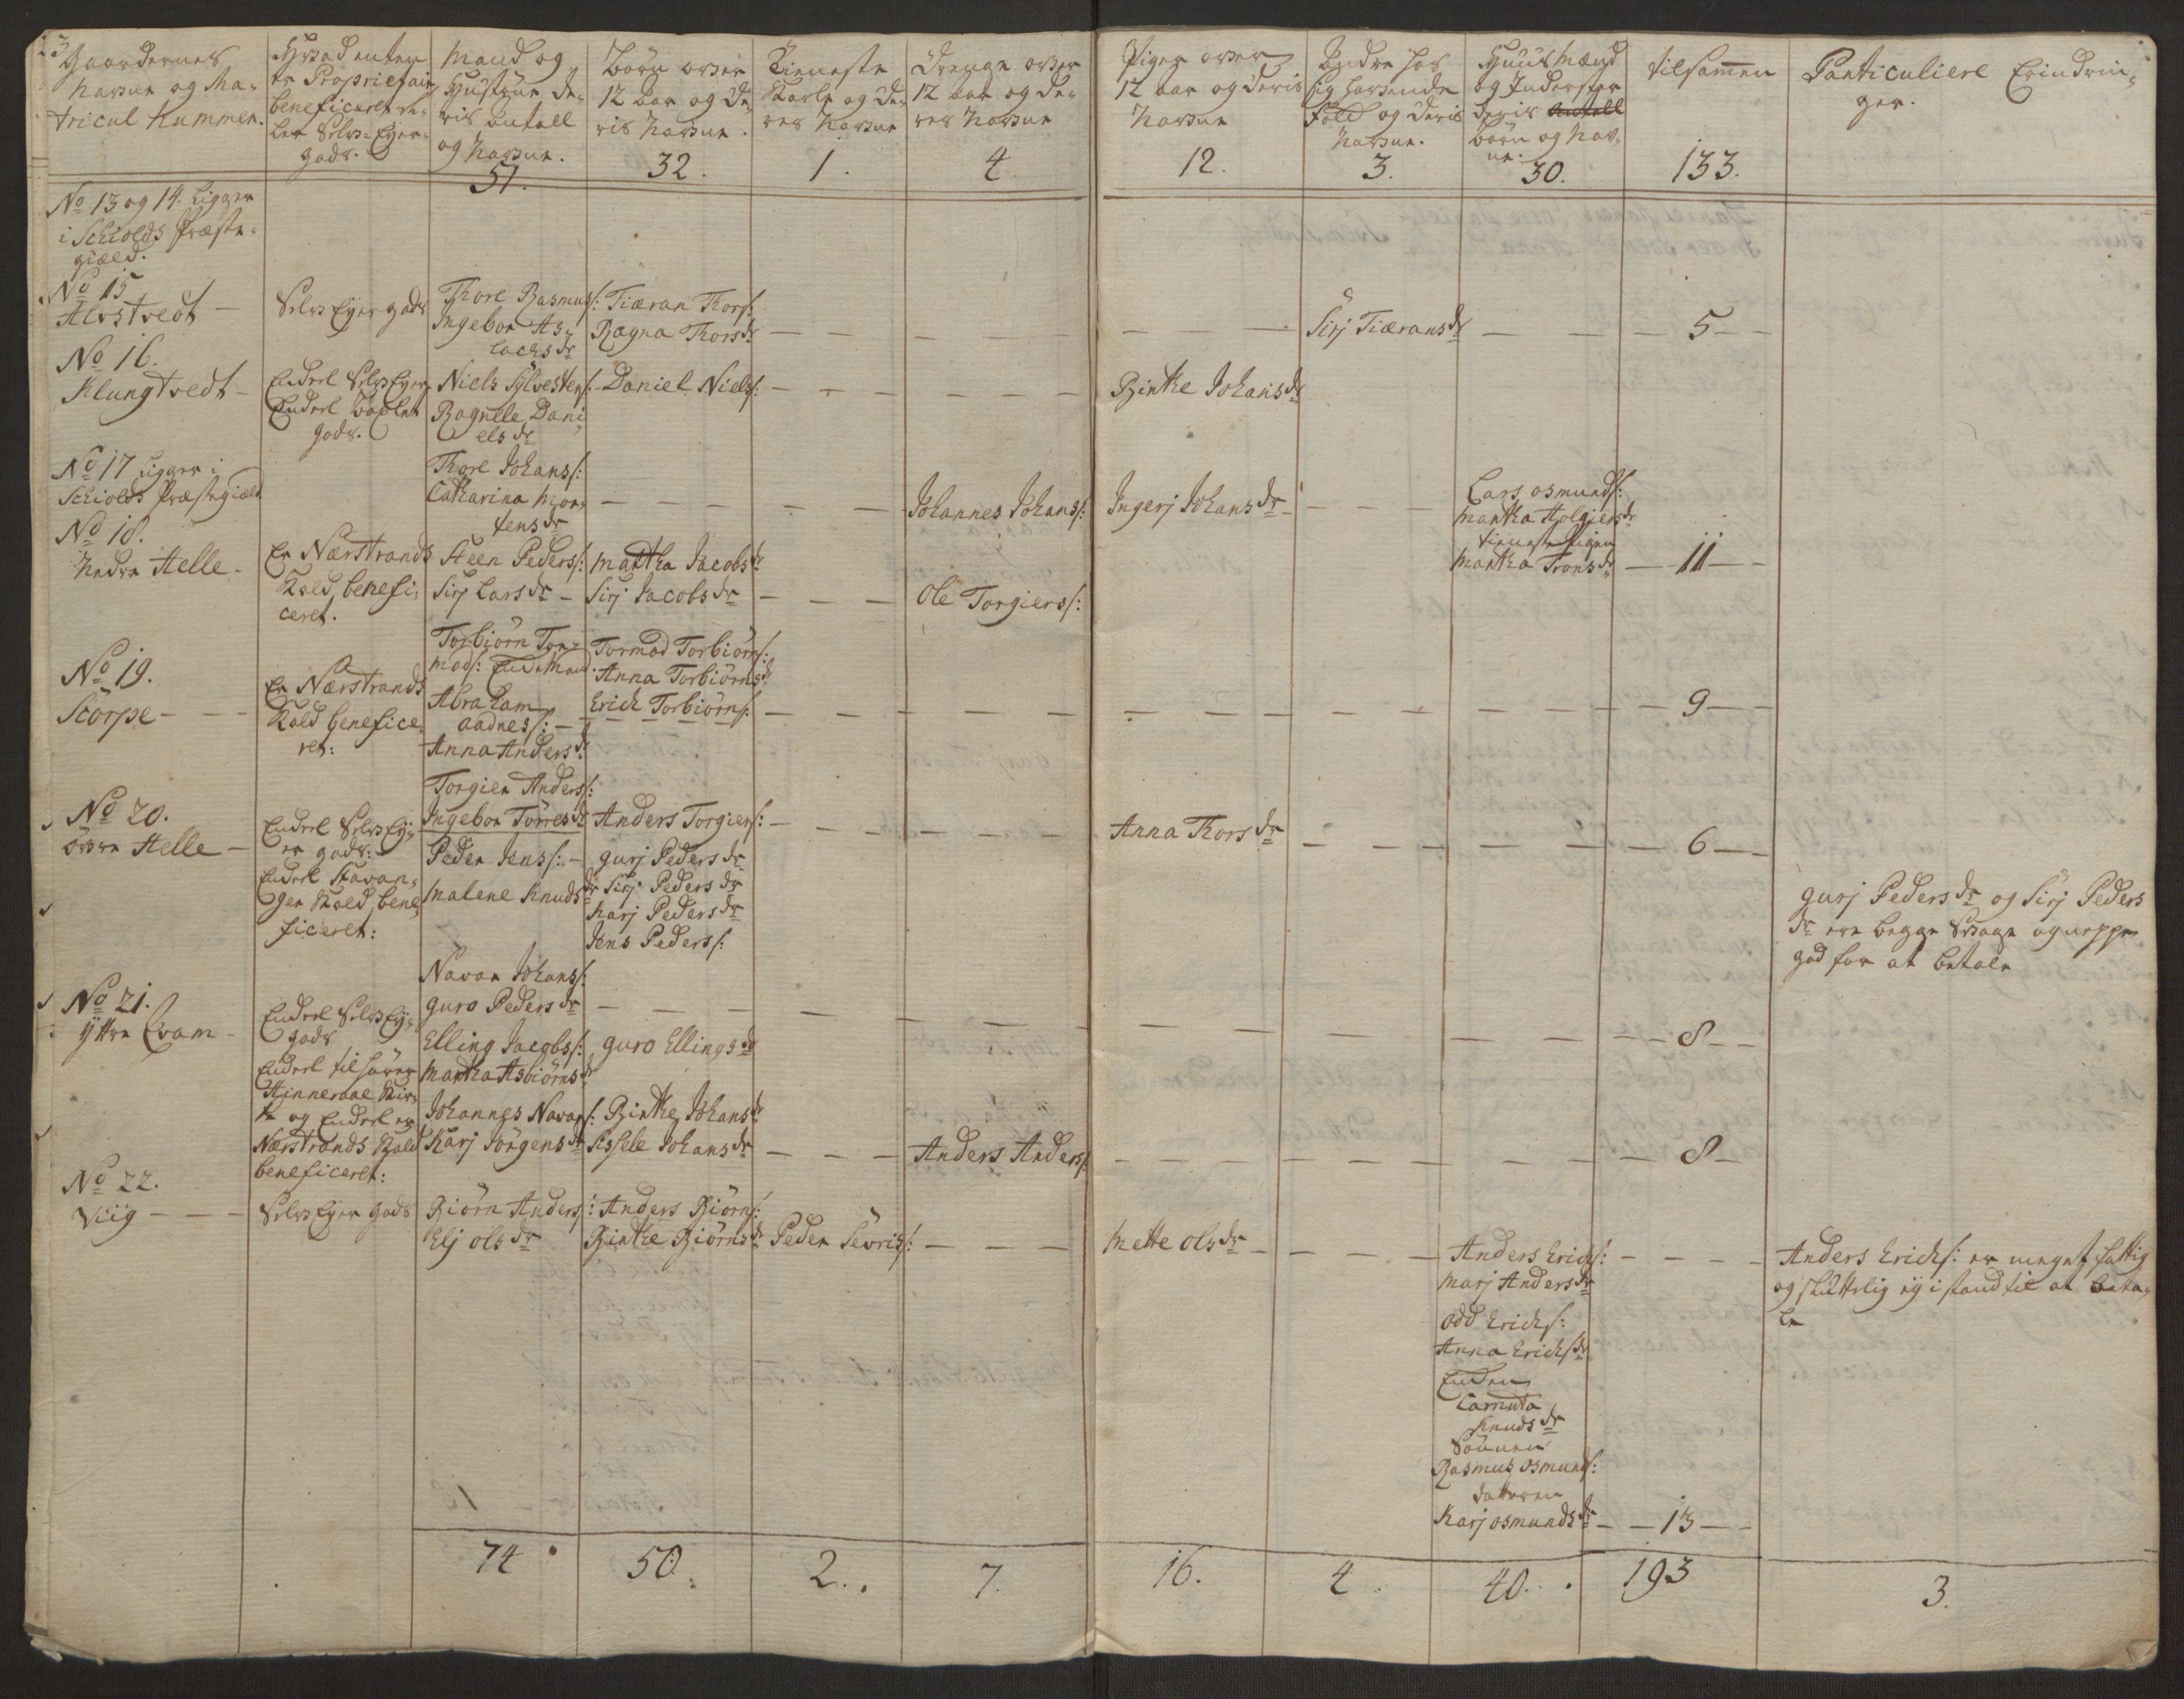 Gaardernes
Nafne og Ma-
tricul Nummer.
Hvad enten
er Proprietair
beneficeret el-
ler Selv-Eyer-
gods.
Mand og
Hustrue de-
ris Antall
og Nafne.
51.
Börn over
12 Aar og De-
ris Nafne.
32.
Tieneste
Karle og De-
res Nafne
1.
Drenge over
12 Aar og de-
res Nafne
4
Piger over
12 Aar og Deris
Nafne
12.
Andre hos
sig havende
Folk og Deris
Nafne.
3.
Huusmænd
og Inderster
deris Antall
börn og Nav-
ne.
30.
tilsammen
133.
Particuliere Erindrin-
ger.
No 13 og 14. Ligger
i Schiolds Præste-
gield.
No 15
Alvstvedt -
Selv Eyer gods
Thore Rasmus/:
Ingebor As-
lachs dr
Tiæran Thors/:
Ragna Thors dr
Sirj Tiærans dr
5
No 16.
Klungtvedt -
Endeel Selv Eyer
Endeel
gods.
Niels Sylvesters/:
Ragnlle Dani-
els dr
Daniel Niels/:
Birthe Johans dr
No 17 Ligger i
Schiolds Præstegield
No 18.
Nedre Helle -
Er Nærstrands
Kald benefi-
ceret.
Thore Johans/:
Catharina Mor-
tens dr
Steen Peders/:
Sirj Lars dr -
Martha Jacobs dr
Sirj Jacobs dr
Johannes Johans/:
Ole Torgiers/:
Ingerj Johans dr
Lars Osmunds/:
Martha Holgiers dr
tieneste pigen
Martha Trons dr
11
No 19.
Scörpe -
Er Nærstrands
Kald benefice-
ret:
Torbiörn Tor-
mods/: Enkemand
Abraham
Aadnes/: -
Anna Anders dr
Tormod Torbiörns/:
Anna Torbiörns dr
Erich Torbiörns/:
9
No 20.
Övre Helle -
Endeel Selv Ey-
er gods:
Endeel Stavan-
ger Kald bene-
ficeret:
Torgier Anders/:
Ingebor Törres dr
Peder Jens/: -
Malene Knuds dr
Anders Torgiers/:
Gurj Peders dr
Sirj Peders dr
Karj Peders dr
Jens Peders/:
Anna Thors dr
6
Gurj Peders dr og Sirj Peders
dr ere begge Svage og neppe
god for at betale
No 21.
Yttre Qvam -
Endeel Selv Ey-
gods
Endeel tilhörer
Hinneraae Kir-
ke og Endeel er
Nærstrands Kald
beneficeret:
Navar Johans/:
Guro Peders dr
Elling Jacobs/:
Martha Asbiörns dr
Johannes Navars/:
Karj Jörgens dr
Guro Ellings dr
Birthe Johans dr
Sissele Johans dr
Anders Anders/:
8
8
No 22.
Viig -
Selv Eyer gods
Biörn Anders/:
Elj Ols dr
Anders Biörns/:
Birthe Biörns dr
Peder Sevris/:
Mette Ols dr
Anders Erichs/:
Marj Anders dr
Odd Erichs/:
Anna Erichs dr
Enken
Larnuta
Knuds dr
Sönnen
Rasmus Osmunds/:
datteren
Karj Osmunds dr
13
Anders Erichs/: er meget fattig
og slutterlig ej i stand til at beta-
le
74
50.
2.
7.
16.
4
40.
193
3.